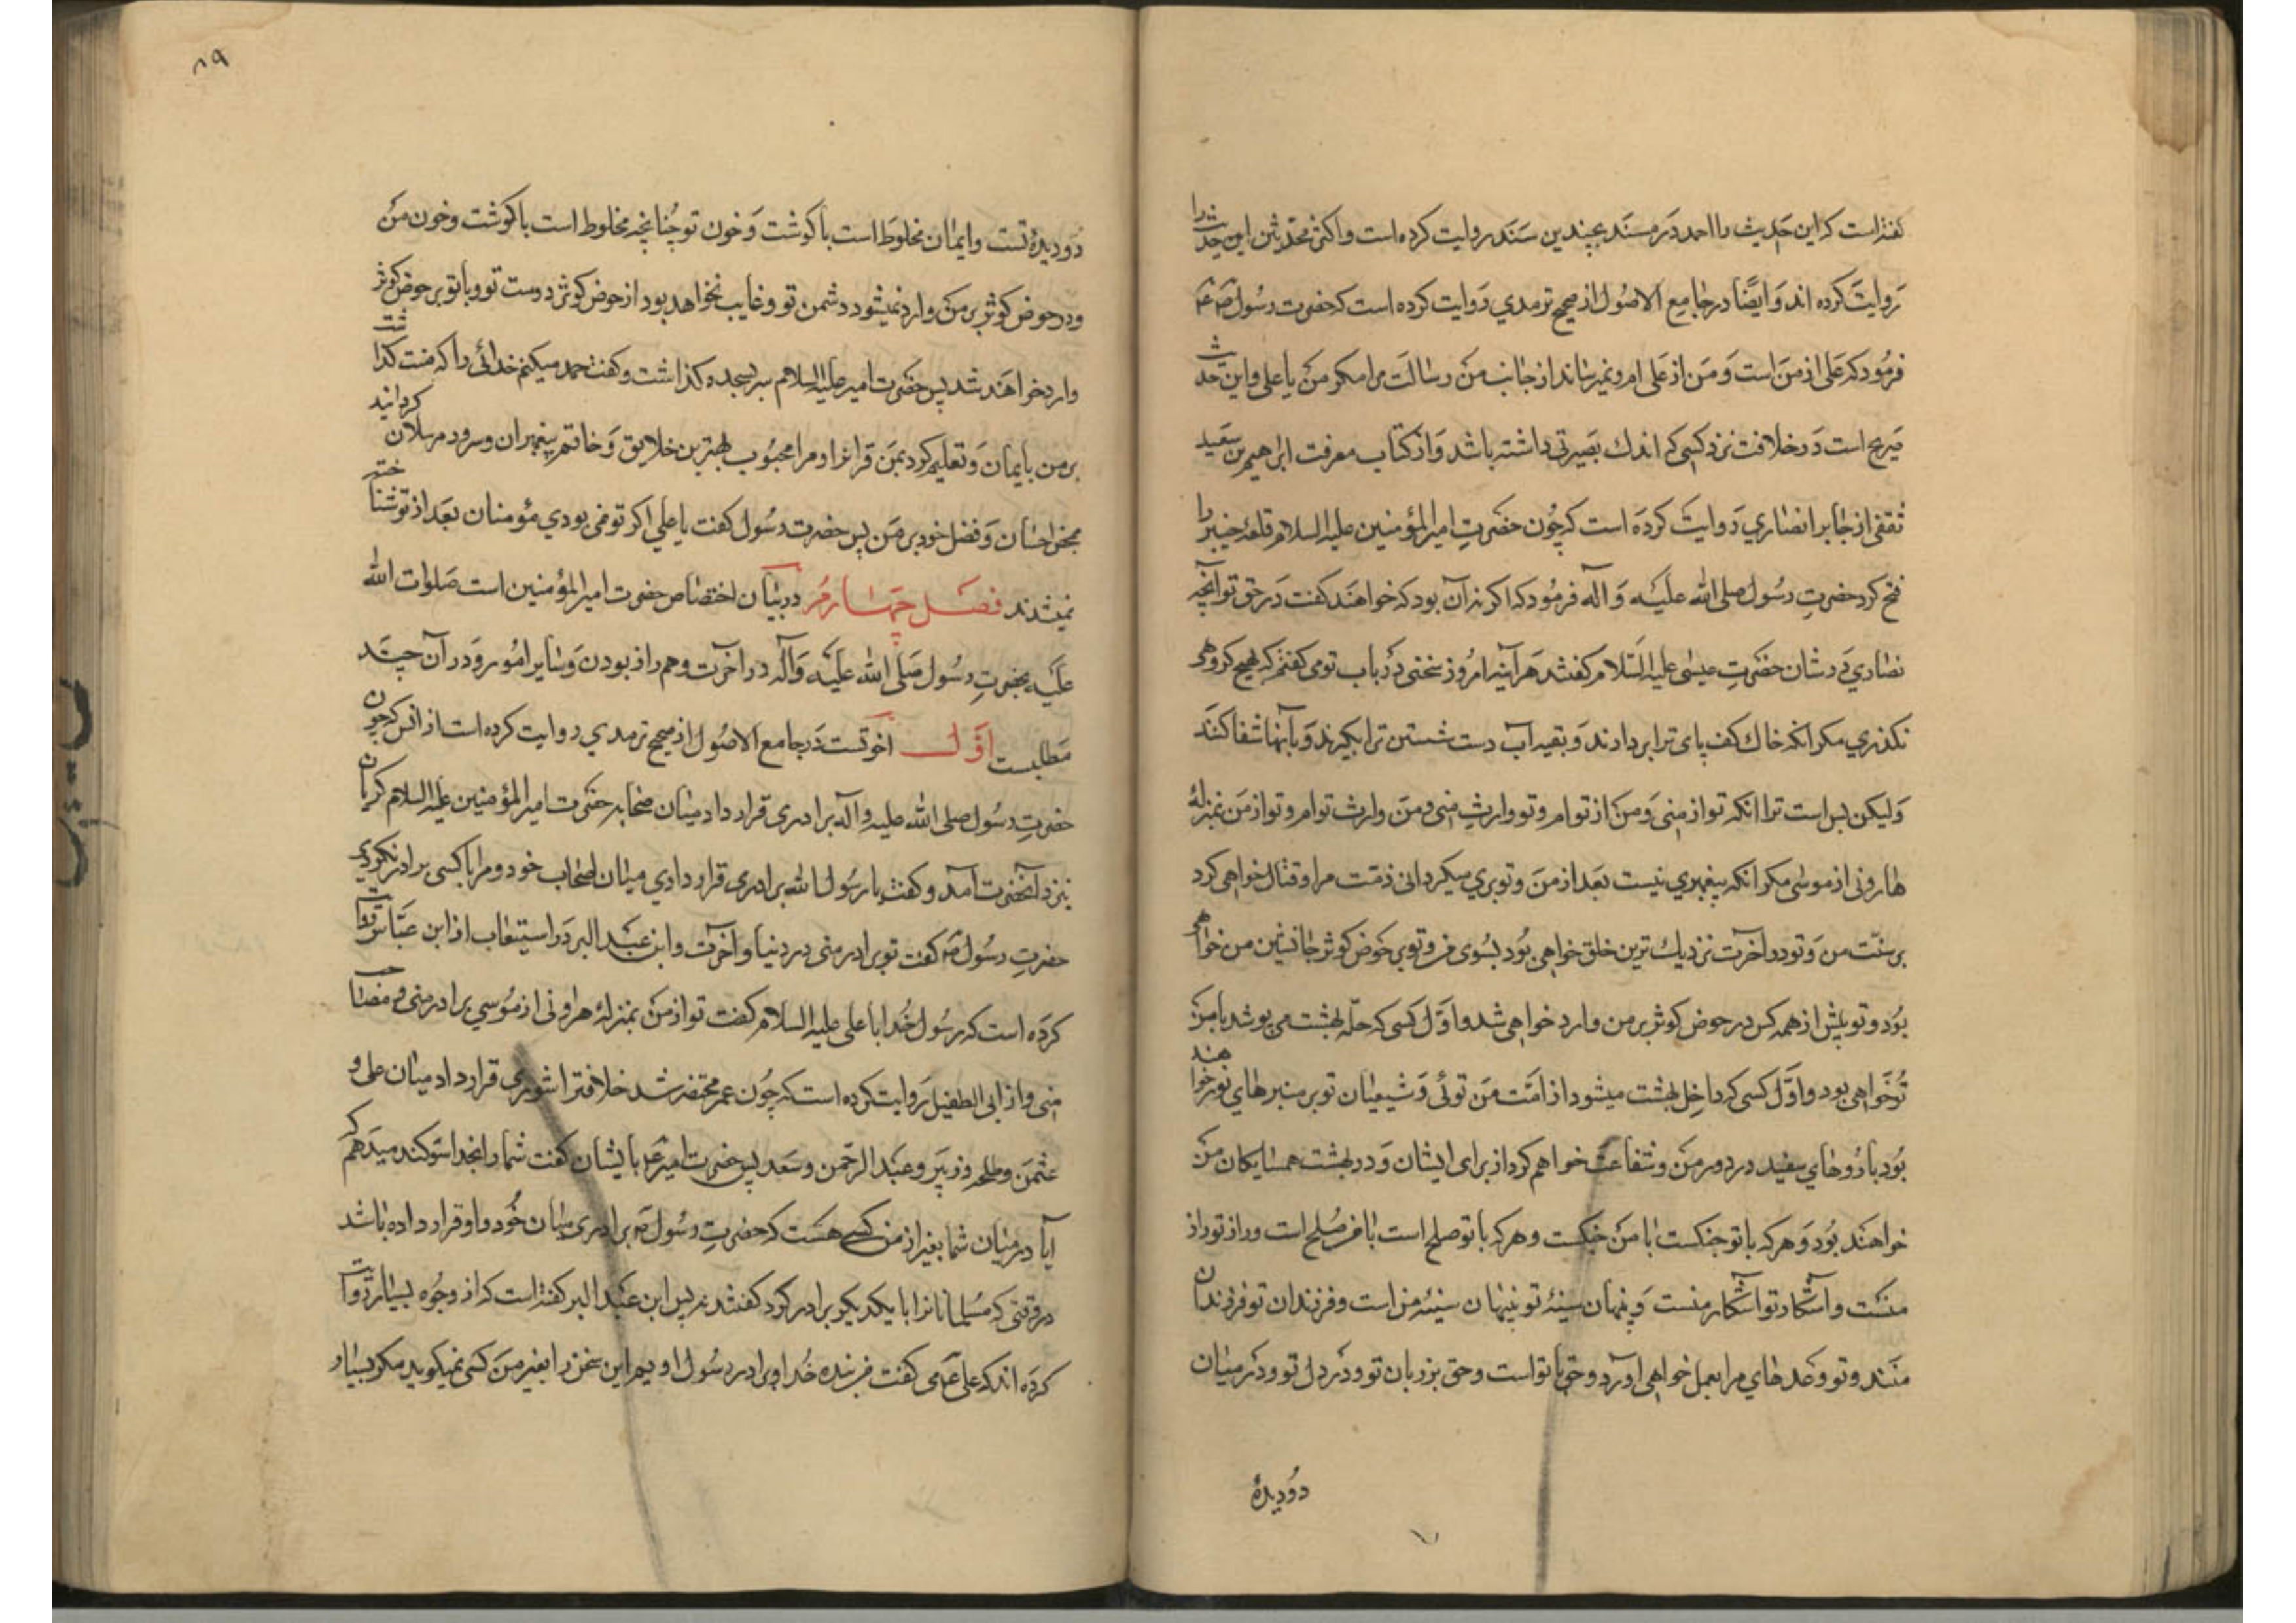 گفته است که این حدیث را احمد در مسند بچندین سند روایت کرده است و اکثر محدثین این حدیث را
روایت کرده اند و ایضًا در جامع الاصول از صحیح ترمدي روایت کرده است که حضرت رسول ص
فرمود که علی از من است و من از علی ام و نمیرساند از جانب من رسالت مرا مکر من یا علی و این حدیث
صریح است در خلافت نزد کسی که اندك بصیرتی داشته باشد و از کتاب معرفت ابراهیم بن سعید
ثقفی از جابر انصاري روایت کرده است که چون حضرت امیر المؤمنین علیه السلام قلعهٔ خیبر را
فتح کرد حضرت رسول صلی الله علیه و آله فرمود که اکر نه آن بود که خواهند کفت در حق تو آنچه
نصاري در شان حضرت عیسی علیه السلام کفتند هر آینه امروز سخنی در باب تو می کفتم که بهیچ کروهی
نکذري مکر انکه خاك کف پای ترا بردارند و بقیه آب دست شستن ترا بکیرند و بآنها شفا کنند
ولیکن بس است ترا انکه تو از منی و من از توام و تو وارث منی و من وارث توام و تو از من بمنزلهٔ
هارونی از موسی مکر انکه پیغمبري نیست بعد از من و تو بري میکردانی ذمت مرا و قتال خواهی کرد
بر سنّت من و تو در آخرت نزدیك ترین خلق خواهی بود بسوی من و تو بر حوض کوثر جانشین من خواهی
بود و تو پیش از همه کس در حوض کوثر بر من وارد خواهی شد و اوّل کسی که حلّه بهشت می پوشد با من
تو خواهی بود و اوّل کسی که داخل بهشت میشود از امّت من توئی و شیعیان تو بر منبرهاي نور خواهند
بود با روهاي سفید در دور من و شفاعت خواهم کرد از برای ایشان و در بهشت همسایکان من
خواهند بود و هر که با تو جنکست با من جنکست و هر که با تو صلح است با من صلح است و راز تو راز
منست و آشکار تو آشکار منست و پنهان سینهٔ تو پنهان سینهٔ من است و فرزندان تو فرزندان
منند و تو وعدهاي مرا بعمل خواهی آورد و حق با تو است و حق بر زبان تو و در دل تو و در میان
دو دیدهٔ
۸۹
دو دیدهٔ تست و ایمان مخلوط است با کوشت و خون تو چنانچه مخلوط است با کوشت و خون من
و در حوض کوثر بر من وارد نمیشود دشمن تو و غایب نخواهد بود از حوض کوثر دوست تو و با تو بر حوض کوثر
وارد خواهند شد پس حضرت امیر علیه السلام سر بسجده کذاشت و کفت حمد میکنم خدائی را که منت کذاشت
بر من بایمان و تعلیم کرد بمن قرانرا و مرا محبوب بهترین خلایق و خاتم پیغمبران و سرور مرسلان کردانید
بمحض احسان و فضل خود بر من پس حضرت رسول کفت یا علي اکر تو نمی بودي مؤمنان بعد از تو شناخته
نمیشدند فصل چهارم در بیان اختصاص حضرت امیر المؤمنین است صلوات الله
علیه بحضرت رسول صلی الله علیه و آله در اخرت و هم راز بودن و سایر امور و در آن چند
مطلبست اوّل اخوتست در جامع الاصول از صحیح ترمدي روایت کرده است از انس که چون
حضرت رسول صلی الله علیه و آله برادری قرار داد میان صحابه حضرت امیر المؤمنین علیه السلام کریان
بنزد آنحضرت آمد و کفت یا رسول الله برادری قرار دادي میان اصحاب خود و مرا با کسی برادر نکردي
حضرت رسول ص کفت تو برادر منی در دنیا و آخرت و ابن عبد البر در استیعاب از ابن عبّاس روایت
کرده است که رسول خدا با علی علیه السلام کفت تو از من بمنزلهٔ هارونی از موسي برادر منی و مصاحب
منی و از ابی الطفیل روایت کرده است که چون عمر محتضر شد خلافترا شوری قرار داد میان علی و
عثمن و طلحه و زبیر و عبد الرحمن و سعد پس حضرت امیر ع بایشان کفت شما را بخدا سوکند میدهم که
آیا در میان شما بغیر از من کسی هست که حضرت رسول ص برادری میان خود و او قرار داده باشد
در وقتی که مسلمانانرا با یکدیکر برادر کرد کفتند نه پس ابن عبد البر کفته است که از وجوه بسیار روایت
کرده اند که علی ع می کفت من بنده خدا و برادر رسول اویم این سخن را بغیر من کسی نمیکوید مکر بسیار